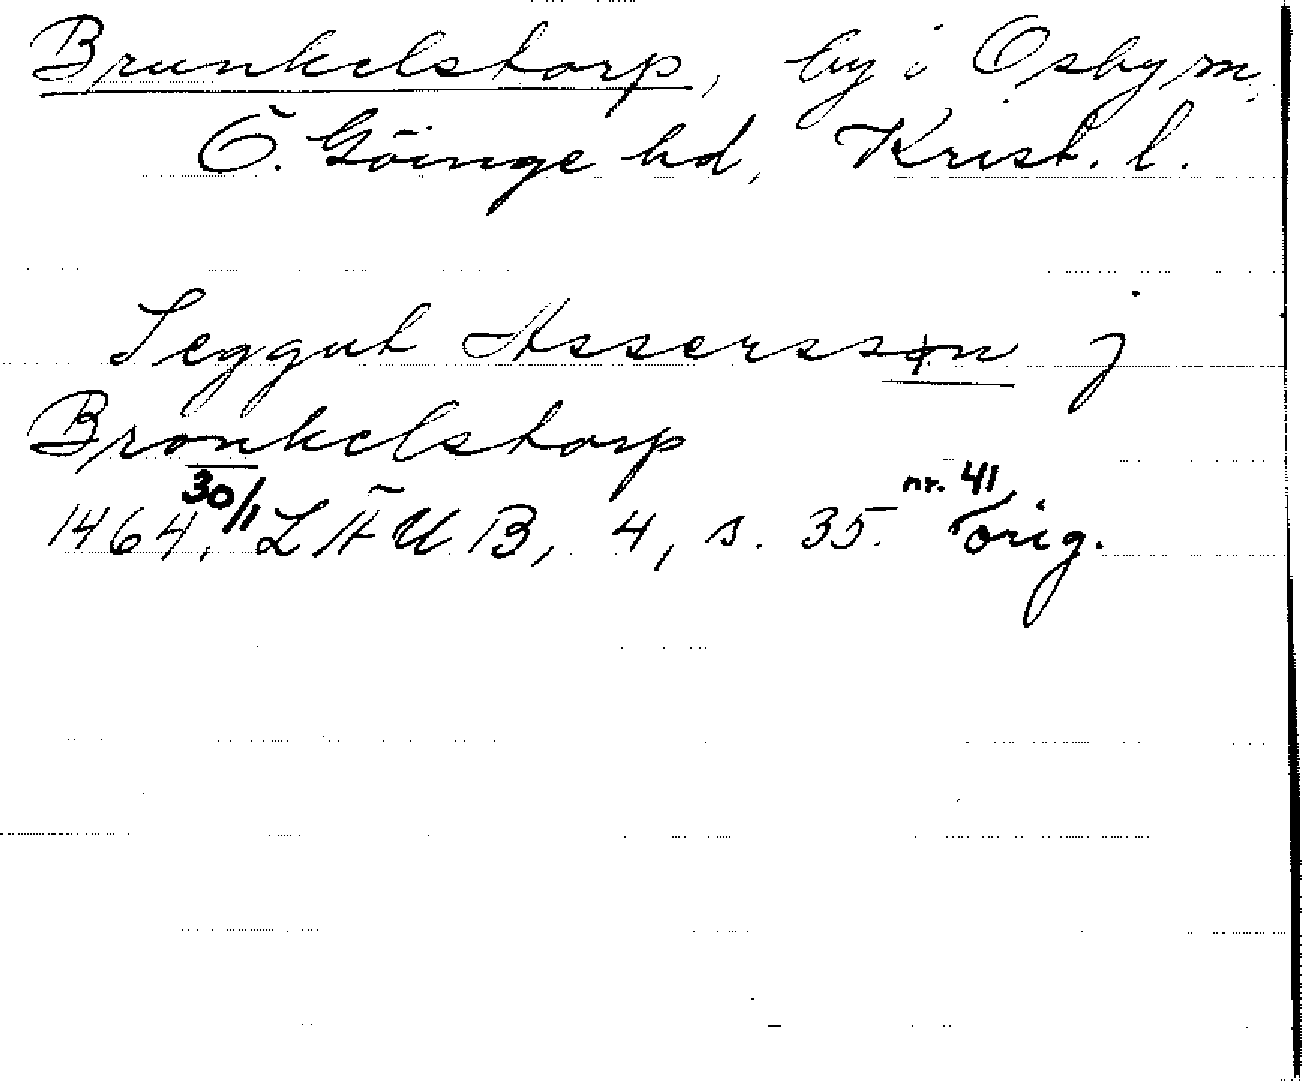 Brunkelstorp, by i Osby sn,
Ö. Göinge hd, Krist. l.
Seggut Assersson j
Bronkelstorp
1464 30/1, LÄUB, 4, s. 35. nr. 41 orig.